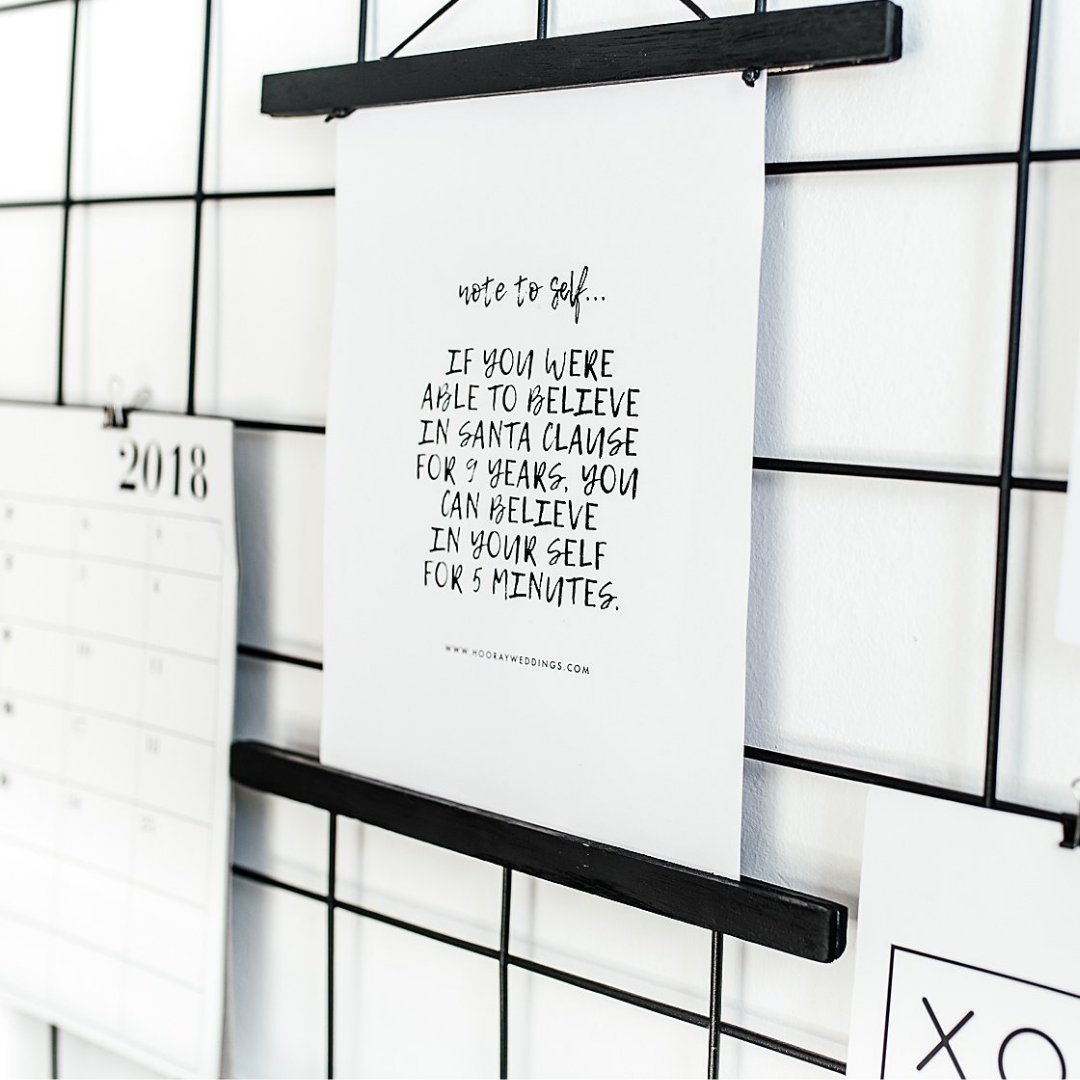 note to self...
IF YOU WERE
ABLE TO BELIEVE
IN SANTA CLAUSE
FOR 9 YEARS, YOU
CAN BELIEVE
IN YOUR SELF
FOR 5 MINUTES.
WWW.HOORAYWEDDINGS.COM
2018
XO